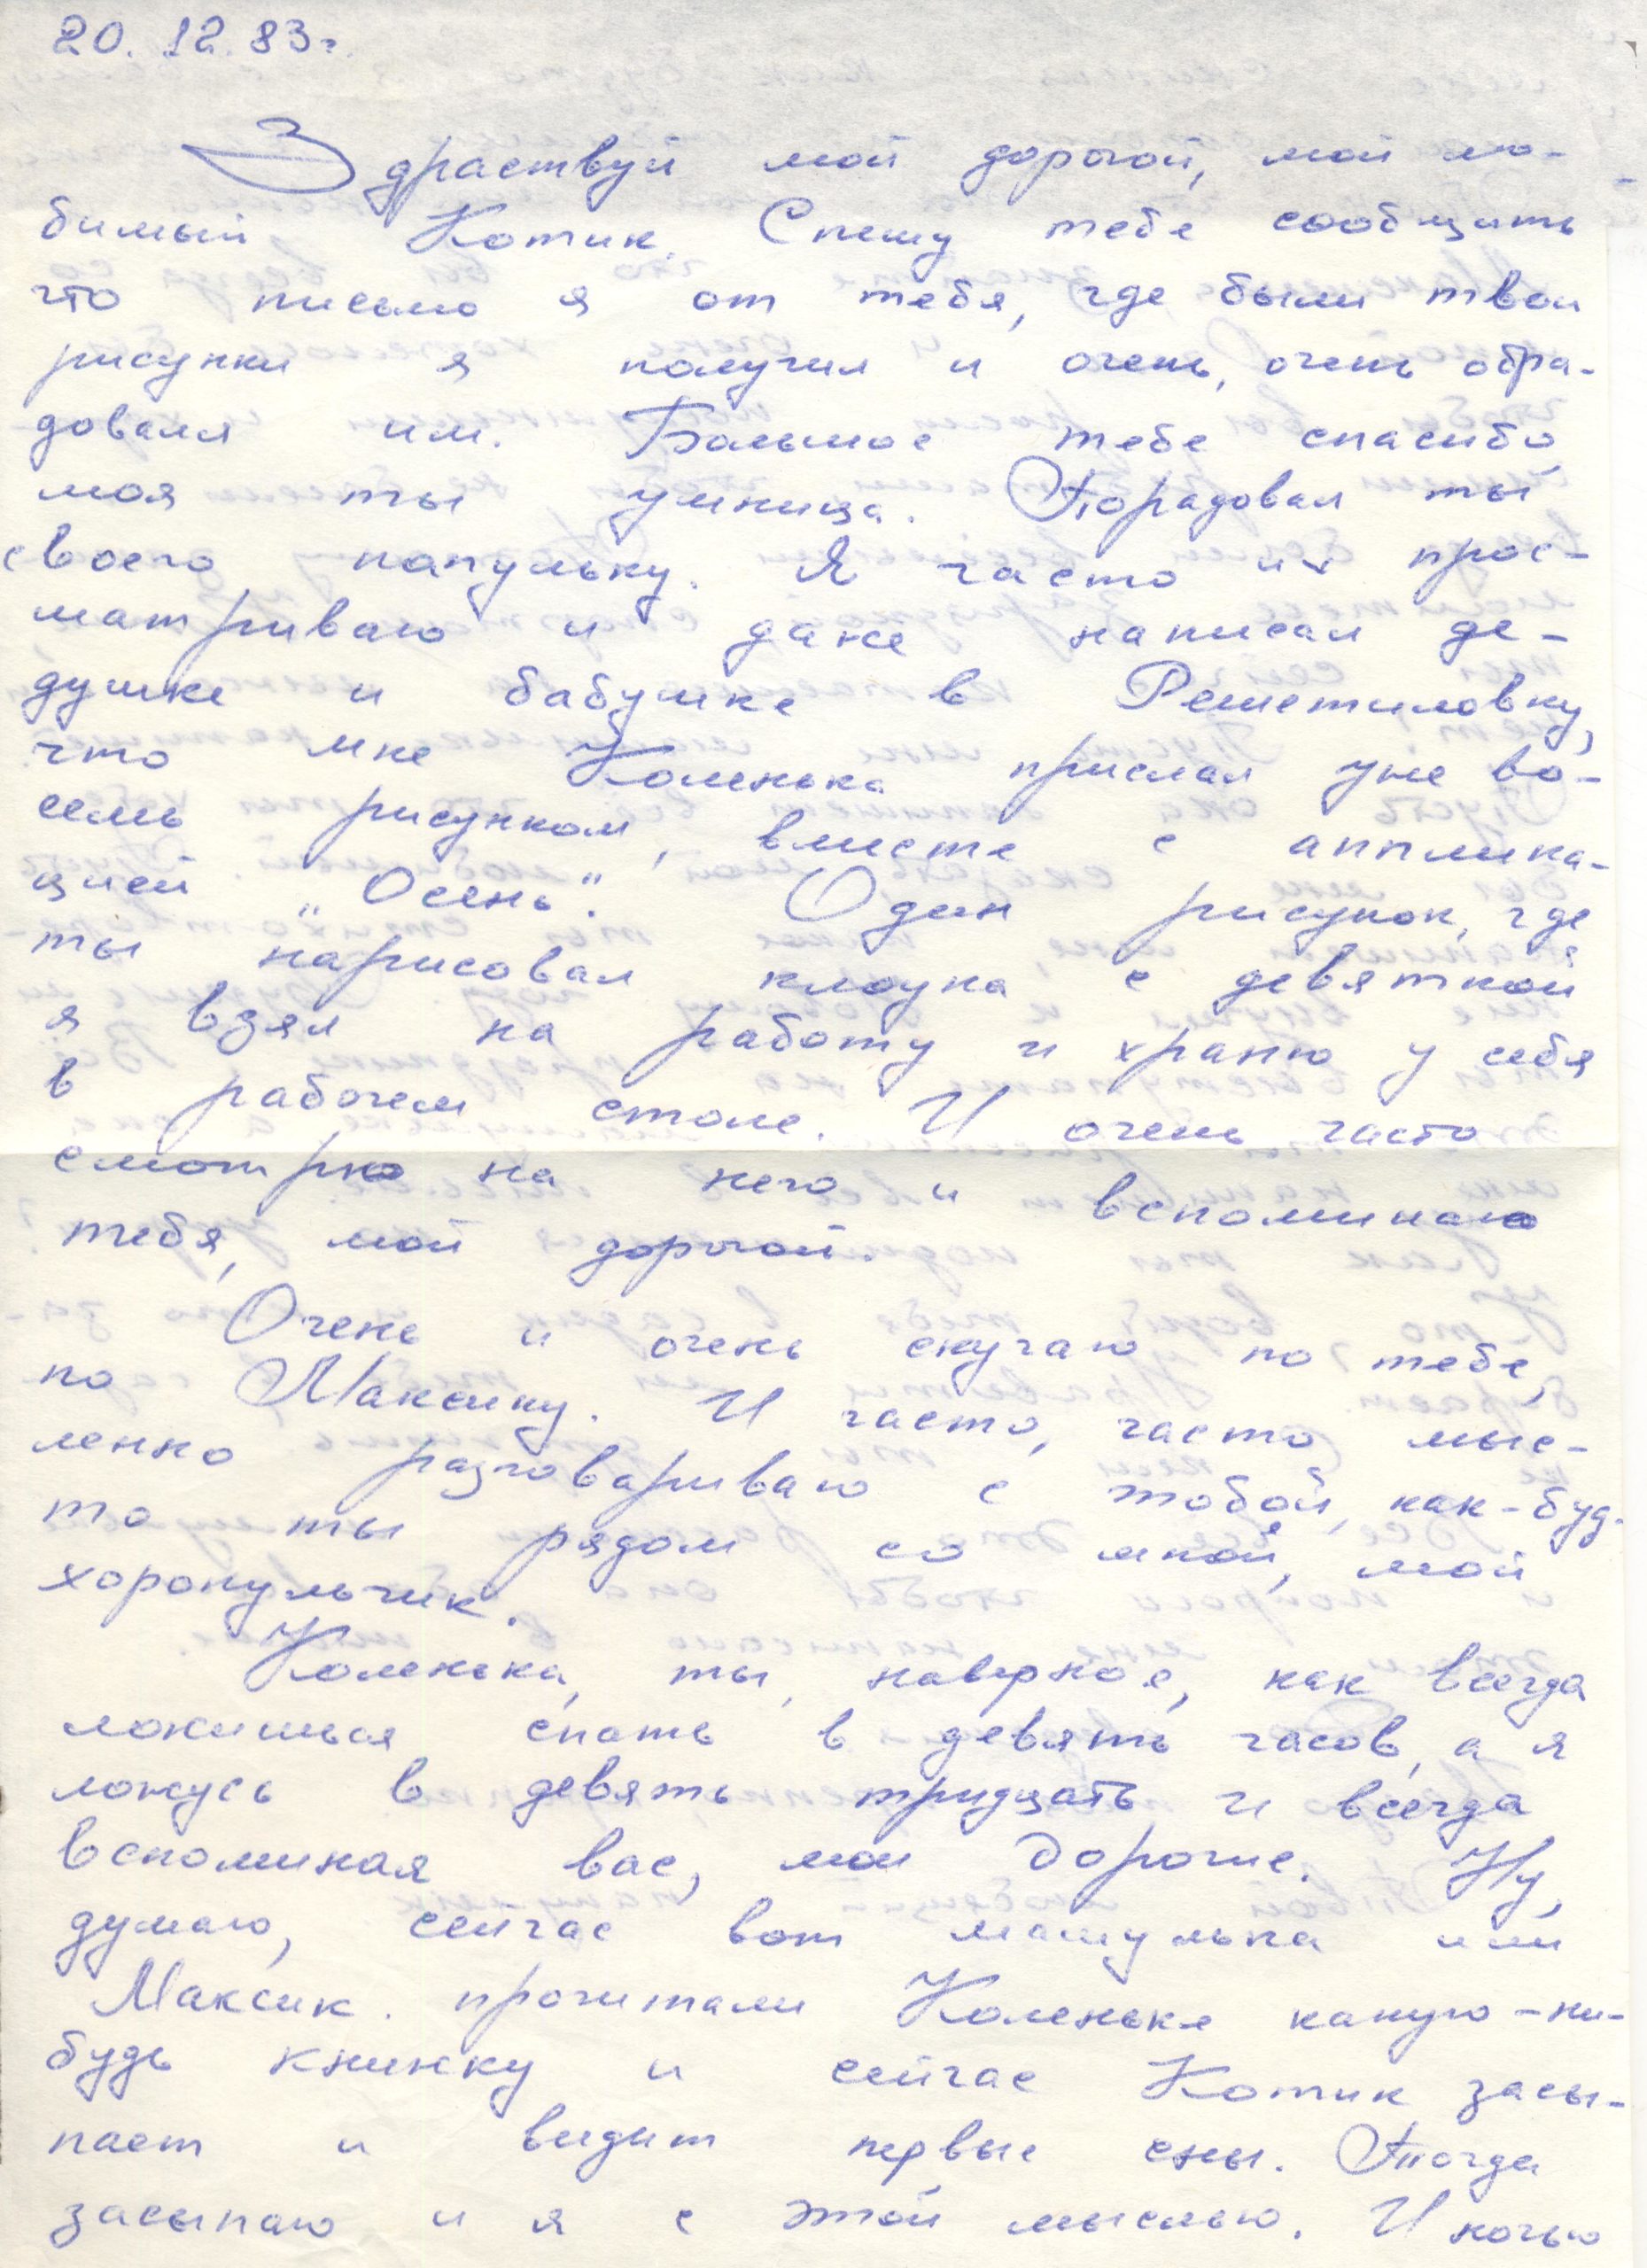 20. 12. 83г.
Здраствуй мой дорогой, мой лю-
бимый Котик. Спешу тебе сообщить
что письмо я от тебя, где были твои
рисунки я получил и очень, очень обра-
довался им. Большое тебе спасибо,
моя ты умница. Порадовал ты
своего папульку. Я часто их прос-
матриваю и даже написал де-
душке и бабушке в Решетиловку,
что мне Коленька прислал уже во-
семь рисунком, вместе с апплика-
цией „Осень“. Один рисунок, где
ты нарисовал клоуна с девяткой
я взял на работу и храню у себя
в рабочем столе. И очень часто
смотрю на него и вспоминаю
тебя, мой дорогой.
Очень и очень скучаю по тебе,
по Максику. И часто, часто мыс-
ленно разговариваю с тобой, как-буд-
то ты рядом со мной, мой
хоропульчик.
Коленька, ты, наверное, как всегда
ложишься спать в девять часов, а я
ложусь в девять тридцать и всегда
вспоминая вас, мои дорогие. Ну,
думаю, сейчас вот мамулька или
Максик. прочитали Коленьке какую-ни-
будь книжку и сейчас Котик засы-
пает и видит первые сны. Тогда
засыпаю и я с этой мыслью. И ночью